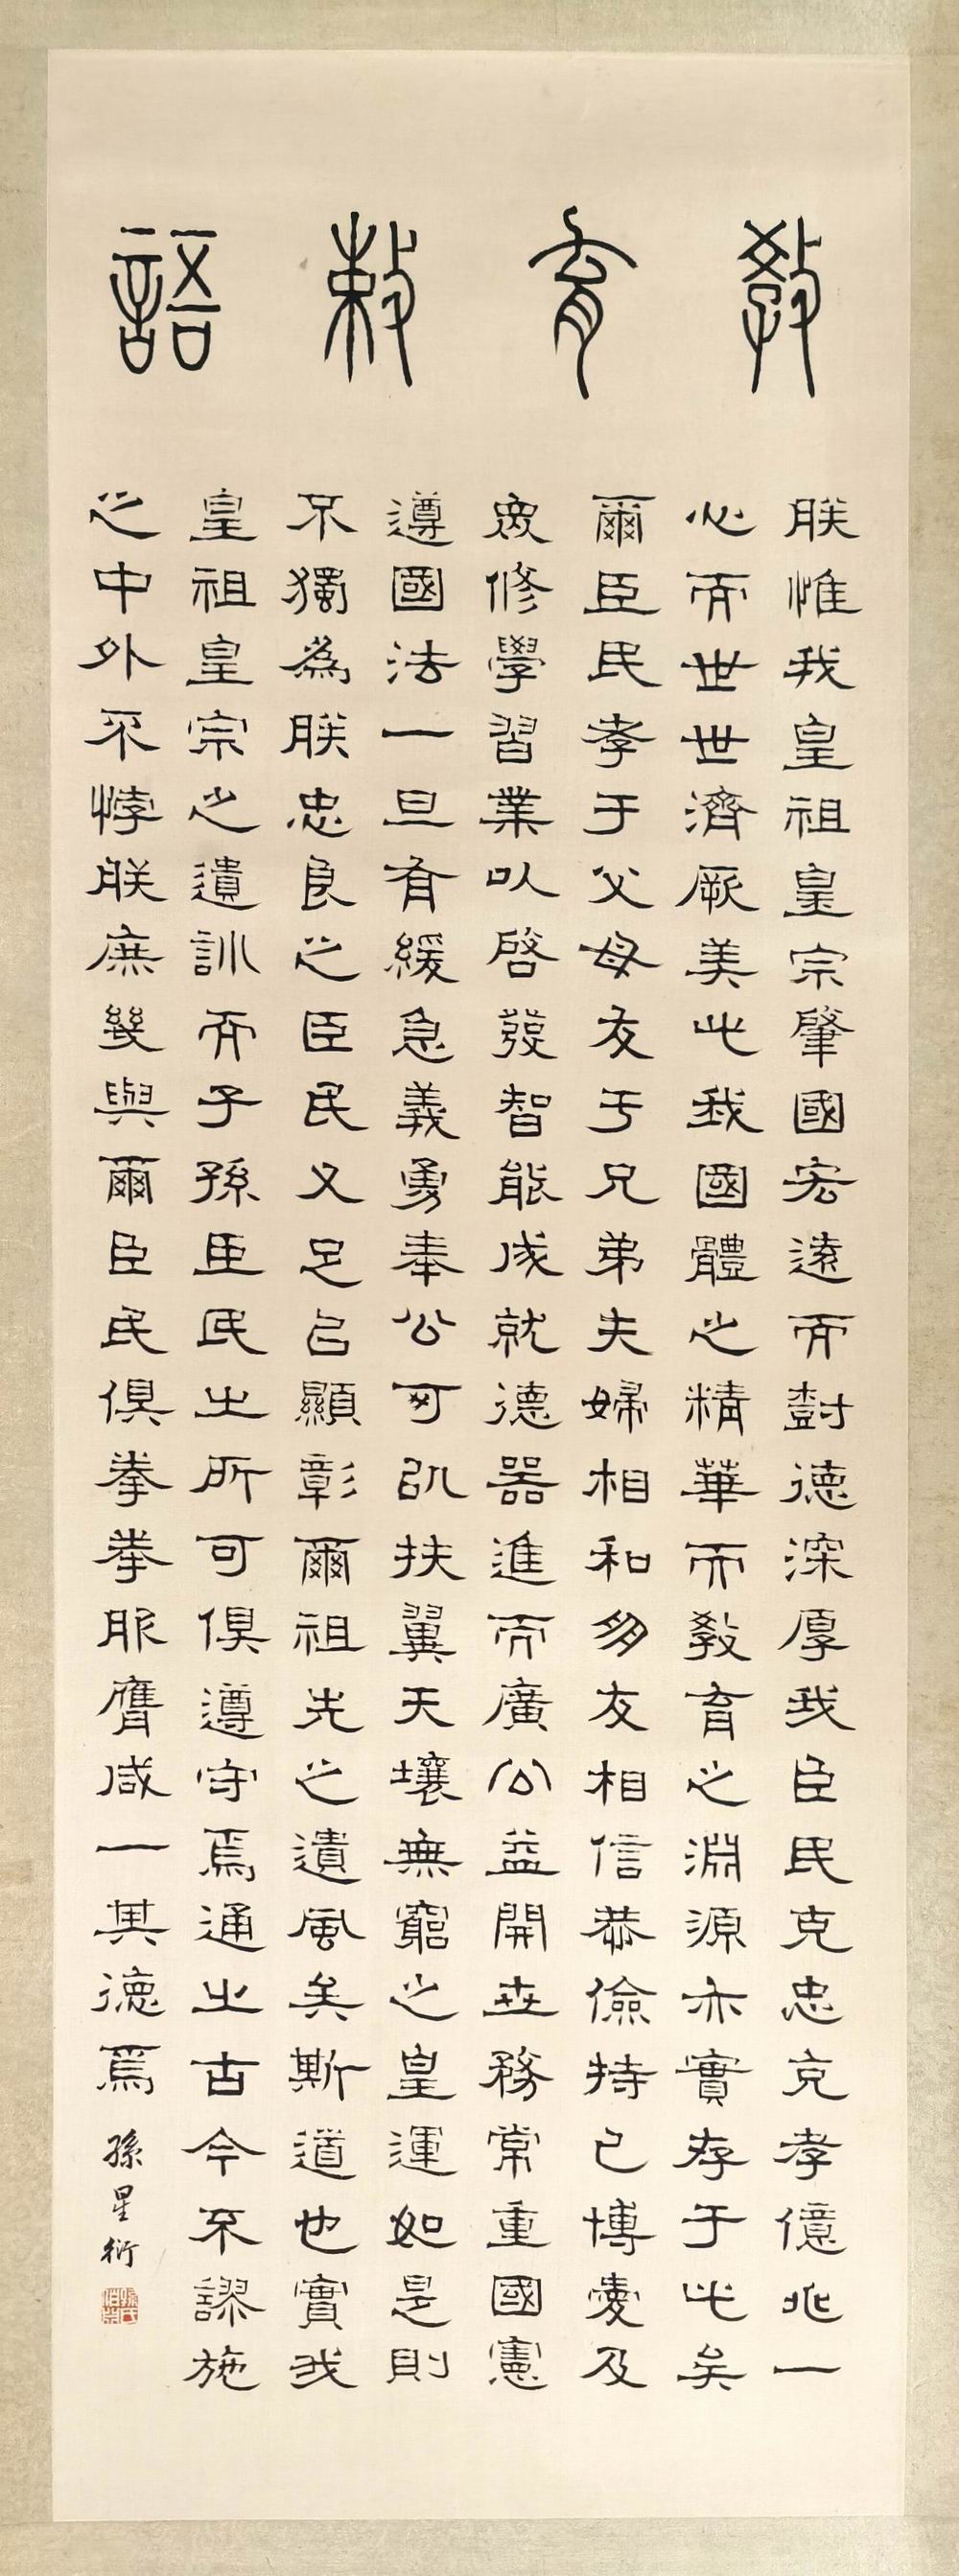 敎育敕語
朕惟我皇祖皇宗肇國宏遠而尌德深厚我臣民克忠克孝億兆一
心而世世濟厥美此我國體之精華而敎育之淵源亦實存于此矣
爾臣民孝于父母友于兄弟夫婦相和朋友相信恭儉持己博愛及
衆修學習業以啓發智能成就德器進而廣公益開世務常重國憲
遵國法一旦有緩急義勇奉公可以扶翼天壤無窮之皇運如是則
不獨為朕忠良之臣民又足以顯彰爾祖先之遺風矣斯道也實我
皇祖皇宗之遺訓而子孫臣民之所可俱遵守焉通之古今不謬施
之中外不悖朕庶幾與爾臣民俱拳拳服膺咸一其德焉
孫星衍